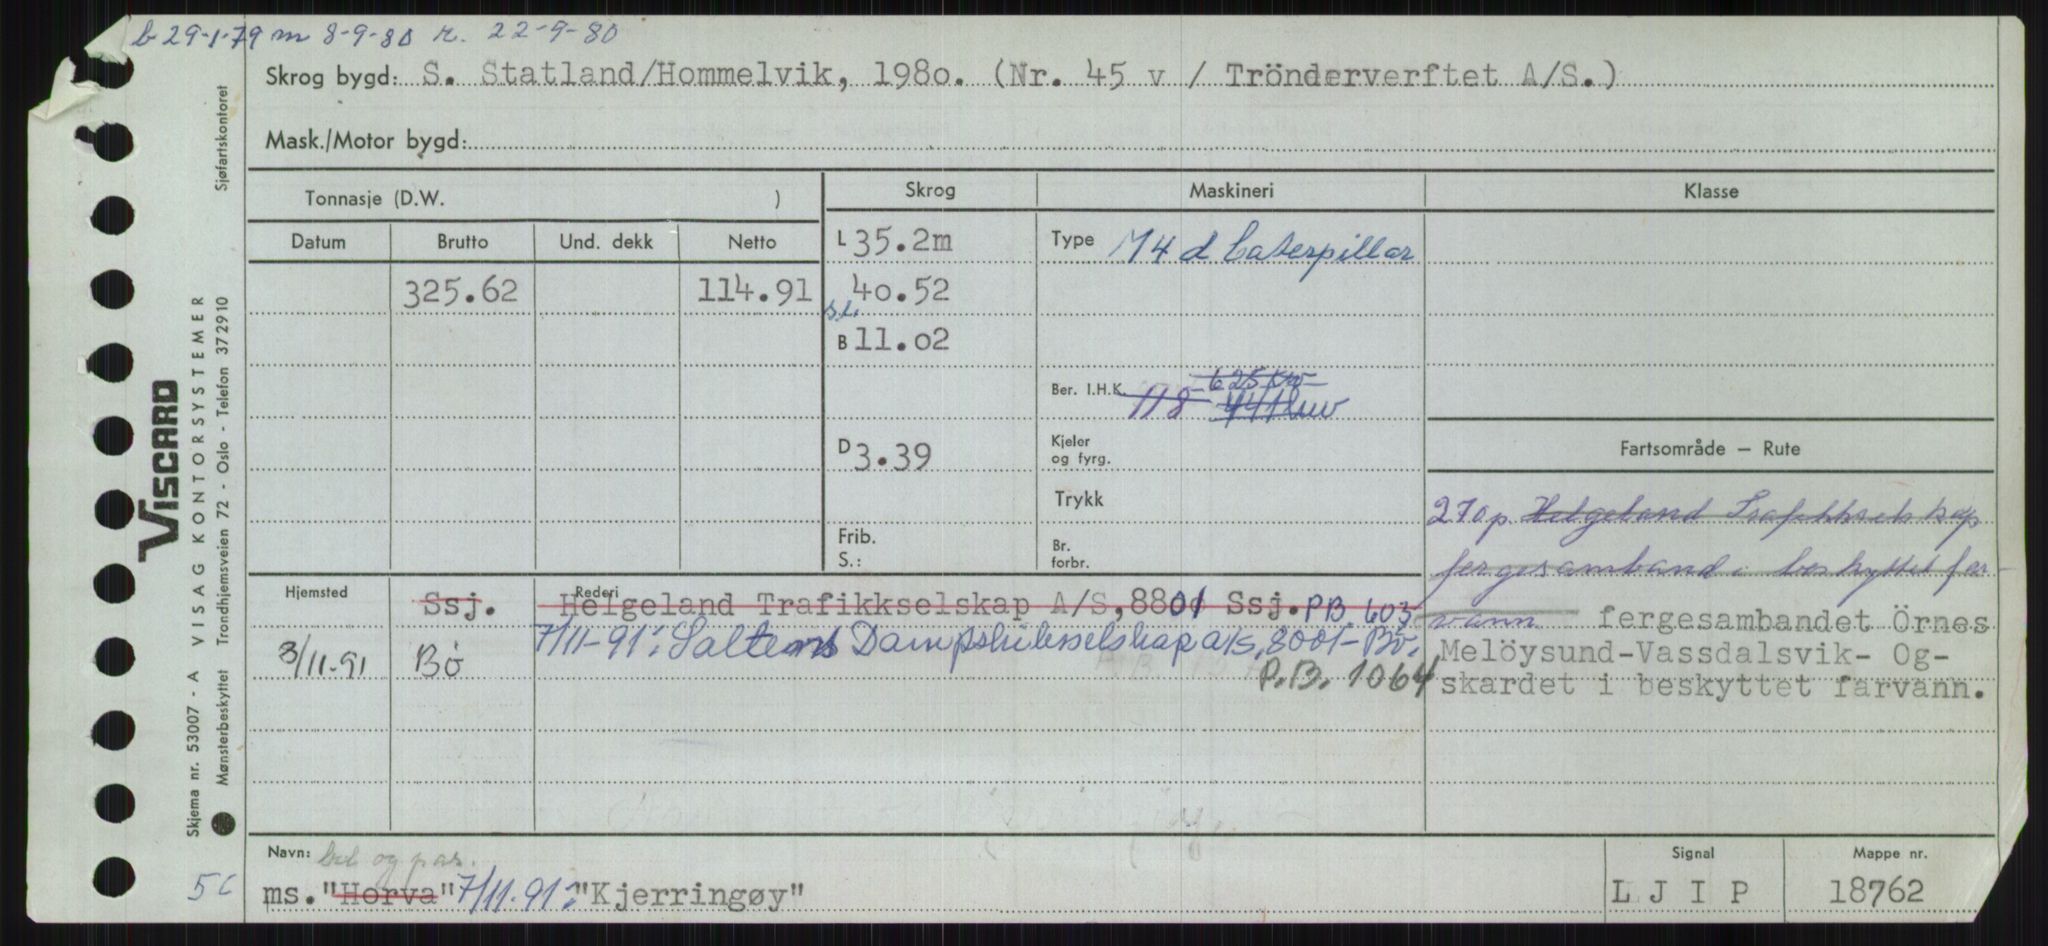 b 29-1-79 m 8-9-80 r. 22-9-80
Skrog bygd: S. Statland/Hommelvik, 198o. (Nr. 45 v / Trönderverftet A/S.)
Mask./Motor bygd:
Tonnasje (D.W. )
Skrog
Maskineri
Klasse
Datum
Brutto
Und. dekk
Netto
L 35.2m
Type M4 d Caterpillar
325.62
114.91
40.52
B 11.o2
Ber. I.H.K. 118 625 Kw
D 3.39
Kjeler
og fyrg.
Trykk
Frib.
S.:
Br.
forbr.
Fartsområde — Rute
270 p. Helgeland Trafikkselskap
fergesamband i beskyttet far-
vann fergesambandet Örnes
Melöysund-Vassdalsvik- Og-
skardet i beskyttet farvann.
Hjemsted
Rederi
Ssj. Helgeland Trafikkselskap A/S, 8801 Ssj. PB 603
8/11-91 Bø 7/11-91: Saltens Dampskibsselskap a/s, 8001 - Bo.
P.B. 1064
Navn: bil og pas.
56 ms. "Horva" 7/11.91: "Kjerringøy"
Signal
L J I P
Mappe nr.
18762
Sjøfartskontoret
VISCARD
Skjema nr. 53007 - A VISAG KONTORSYSTEMER
Mønsterbeskyttet Trondhjemsveien 72 - Oslo - Telefon 372910